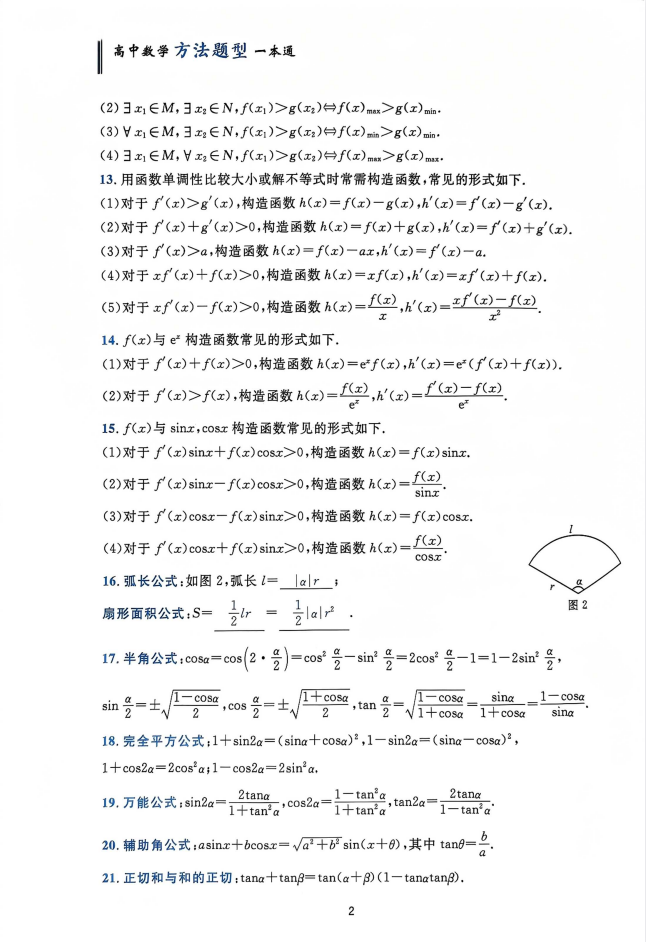 高中数学方法题型一本通
(2)∃x₁∈M,∃x₂∈N,f(x₁)>g(x₂)⇔f(x)max>g(x)min.
(3)∀x₁∈M,∃x₂∈N,f(x₁)>g(x₂)⇔f(x)min>g(x)min.
(4)∃x₁∈M,∀x₂∈N,f(x₁)>g(x₂)⇔f(x)max>g(x)max.
13.用函数单调性比较大小或解不等式时常需构造函数,常见的形式如下.
(1)对于 f′(x)>g′(x),构造函数 h(x)=f(x)-g(x),h′(x)=f′(x)-g′(x).
(2)对于 f′(x)+g′(x)>0,构造函数 h(x)=f(x)+g(x),h′(x)=f′(x)+g′(x).
(3)对于 f′(x)>a,构造函数 h(x)=f(x)-ax,h′(x)=f′(x)-a.
(4)对于 xf′(x)+f(x)>0,构造函数 h(x)=xf(x),h′(x)=xf′(x)+f(x).
(5)对于 xf′(x)-f(x)>0,构造函数 h(x)=f(x)/x,h′(x)=(xf′(x)-f(x))/x².
14. f(x)与 eˣ 构造函数常见的形式如下.
(1)对于 f′(x)+f(x)>0,构造函数 h(x)=eˣf(x),h′(x)=eˣ(f′(x)+f(x)).
(2)对于 f′(x)>f(x),构造函数 h(x)=f(x)/eˣ,h′(x)=(f′(x)-f(x))/eˣ.
15. f(x)与 sinx,cosx 构造函数常见的形式如下.
(1)对于 f′(x)sinx+f(x)cosx>0,构造函数 h(x)=f(x)sinx.
(2)对于 f′(x)sinx-f(x)cosx>0,构造函数 h(x)=f(x)/sinx.
(3)对于 f′(x)cosx-f(x)sinx>0,构造函数 h(x)=f(x)cosx.
(4)对于 f′(x)cosx+f(x)sinx>0,构造函数 h(x)=f(x)/cosx.
l
r
α
图 2
16.弧长公式:如图 2,弧长 l= |α|r ;
扇形面积公式:S= 1/2 lr = 1/2 |α|r² .
17.半角公式:cosα=cos(2·α/2)=cos² α/2-sin² α/2=2cos² α/2-1=1-2sin² α/2,
sin α/2=±√((1-cosα)/2),cos α/2=±√((1+cosα)/2),tan α/2=√((1-cosα)/(1+cosα))=sinα/(1+cosα)=(1-cosα)/sinα.
18.完全平方公式:1+sin2α=(sinα+cosα)²,1-sin2α=(sinα-cosα)²,
1+cos2α=2cos²α;1-cos2α=2sin²α.
19.万能公式:sin2α=2tanα/(1+tan²α),cos2α=(1-tan²α)/(1+tan²α),tan2α=2tanα/(1-tan²α).
20.辅助角公式:asinx+bcosx=√(a²+b²)sin(x+θ),其中 tanθ=b/a.
21.正切和与和的正切:tanα+tanβ=tan(α+β)(1-tanαtanβ).
2